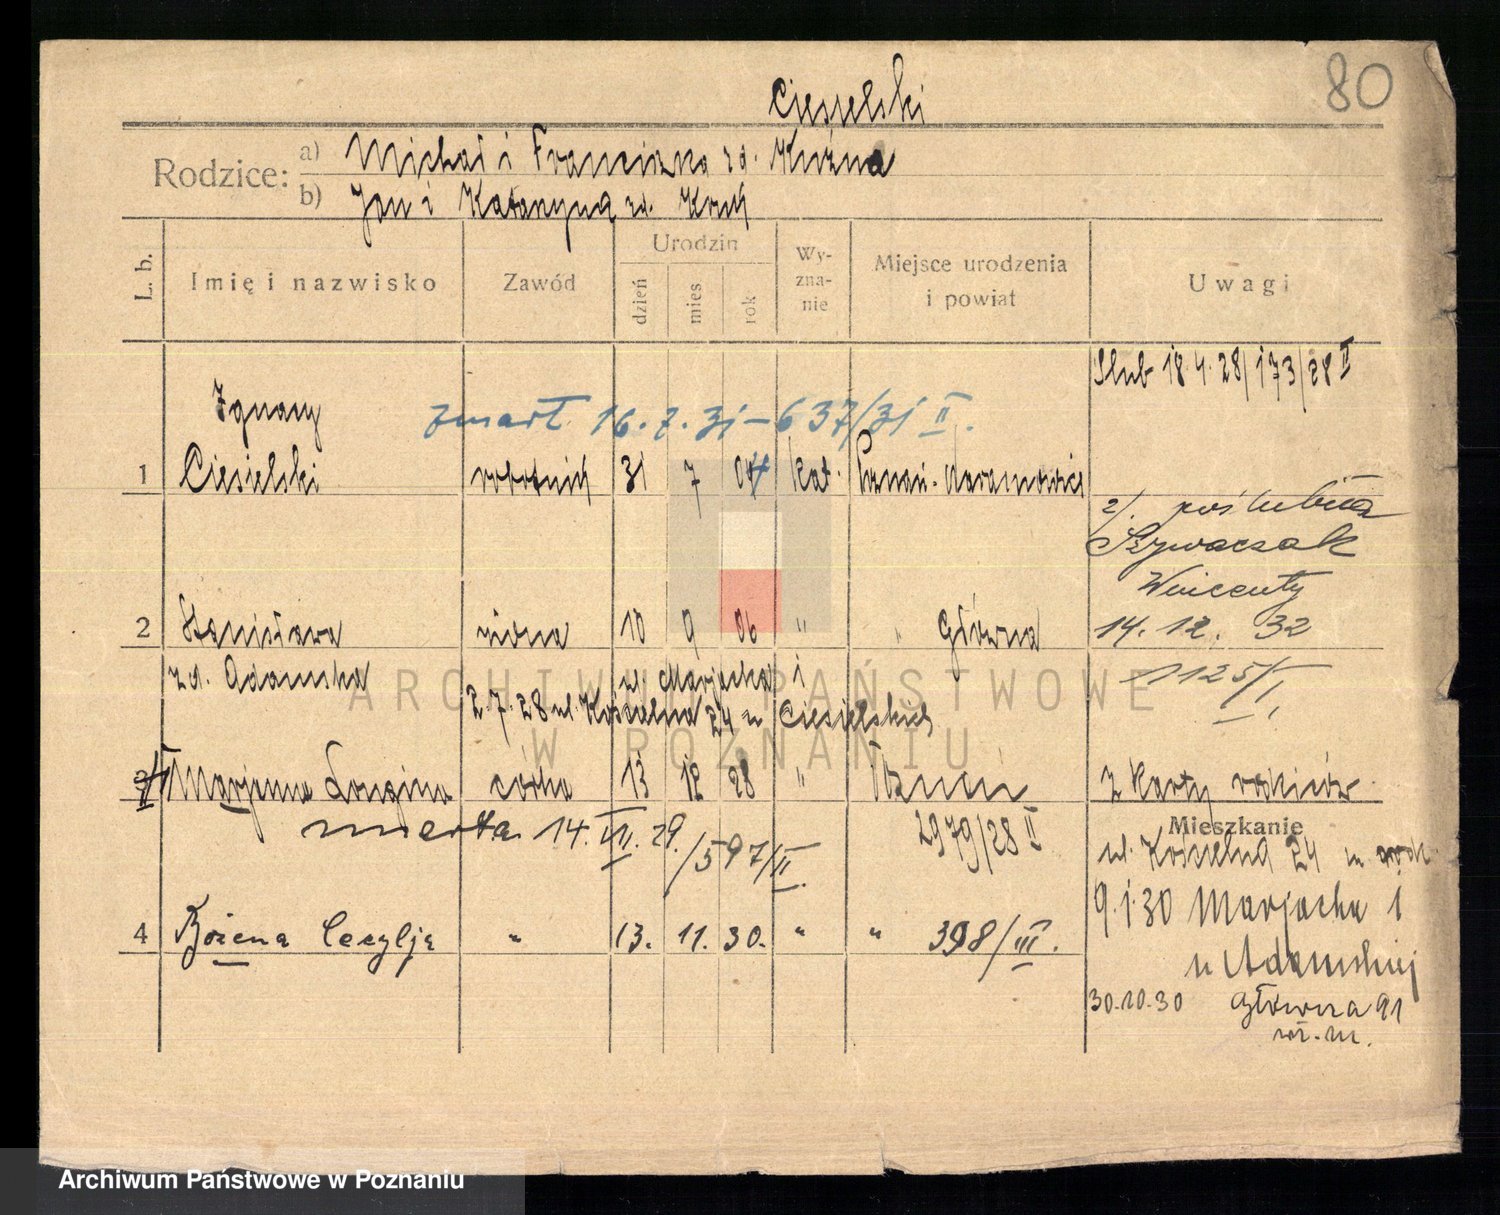 80
Ciesielski
Rodzice: a) Michał i Franciszka zd. Kuźna
b) Jan i Katarzyna zd.
L. b. Imię i nazwisko Zawód Urodzin dzień mies rok Wy-zna-nie Miejsce urodzenia i powiat Uwagi
Ślub 18.4.28/173/28 II
zmarł 16.7.31-637/31 II.
Ignacy
1 Ciesielski robotnik 31 7 04 kat. Poznań-Naramowice
2/. poślubiła
Szywaczak
Wincenty
2 Stanisława żona 10 9 06 " " Główna 14.12.32
zd. Adamska ul. Marjacka 1 1125/I,
2.7.28 ul. Kościelna 24 u Ciesielskich
Marjanna Longina córka 13 12 28 " Poznań z karty rodziców
zmarła 14.VII.29./597/II. 2979/28 II
Mieszkanie
ul. Kościelna 24 u rodz.
9.1.30 Marjacka 1
4 Bożena Cecylja " 13. 11. 30. " " 398/III.
u Adamskiej
30.10.30 Główna 91
ARCHIWUM PAŃSTWOWE
W POZNANIU
Archiwum Państwowe w Poznaniu